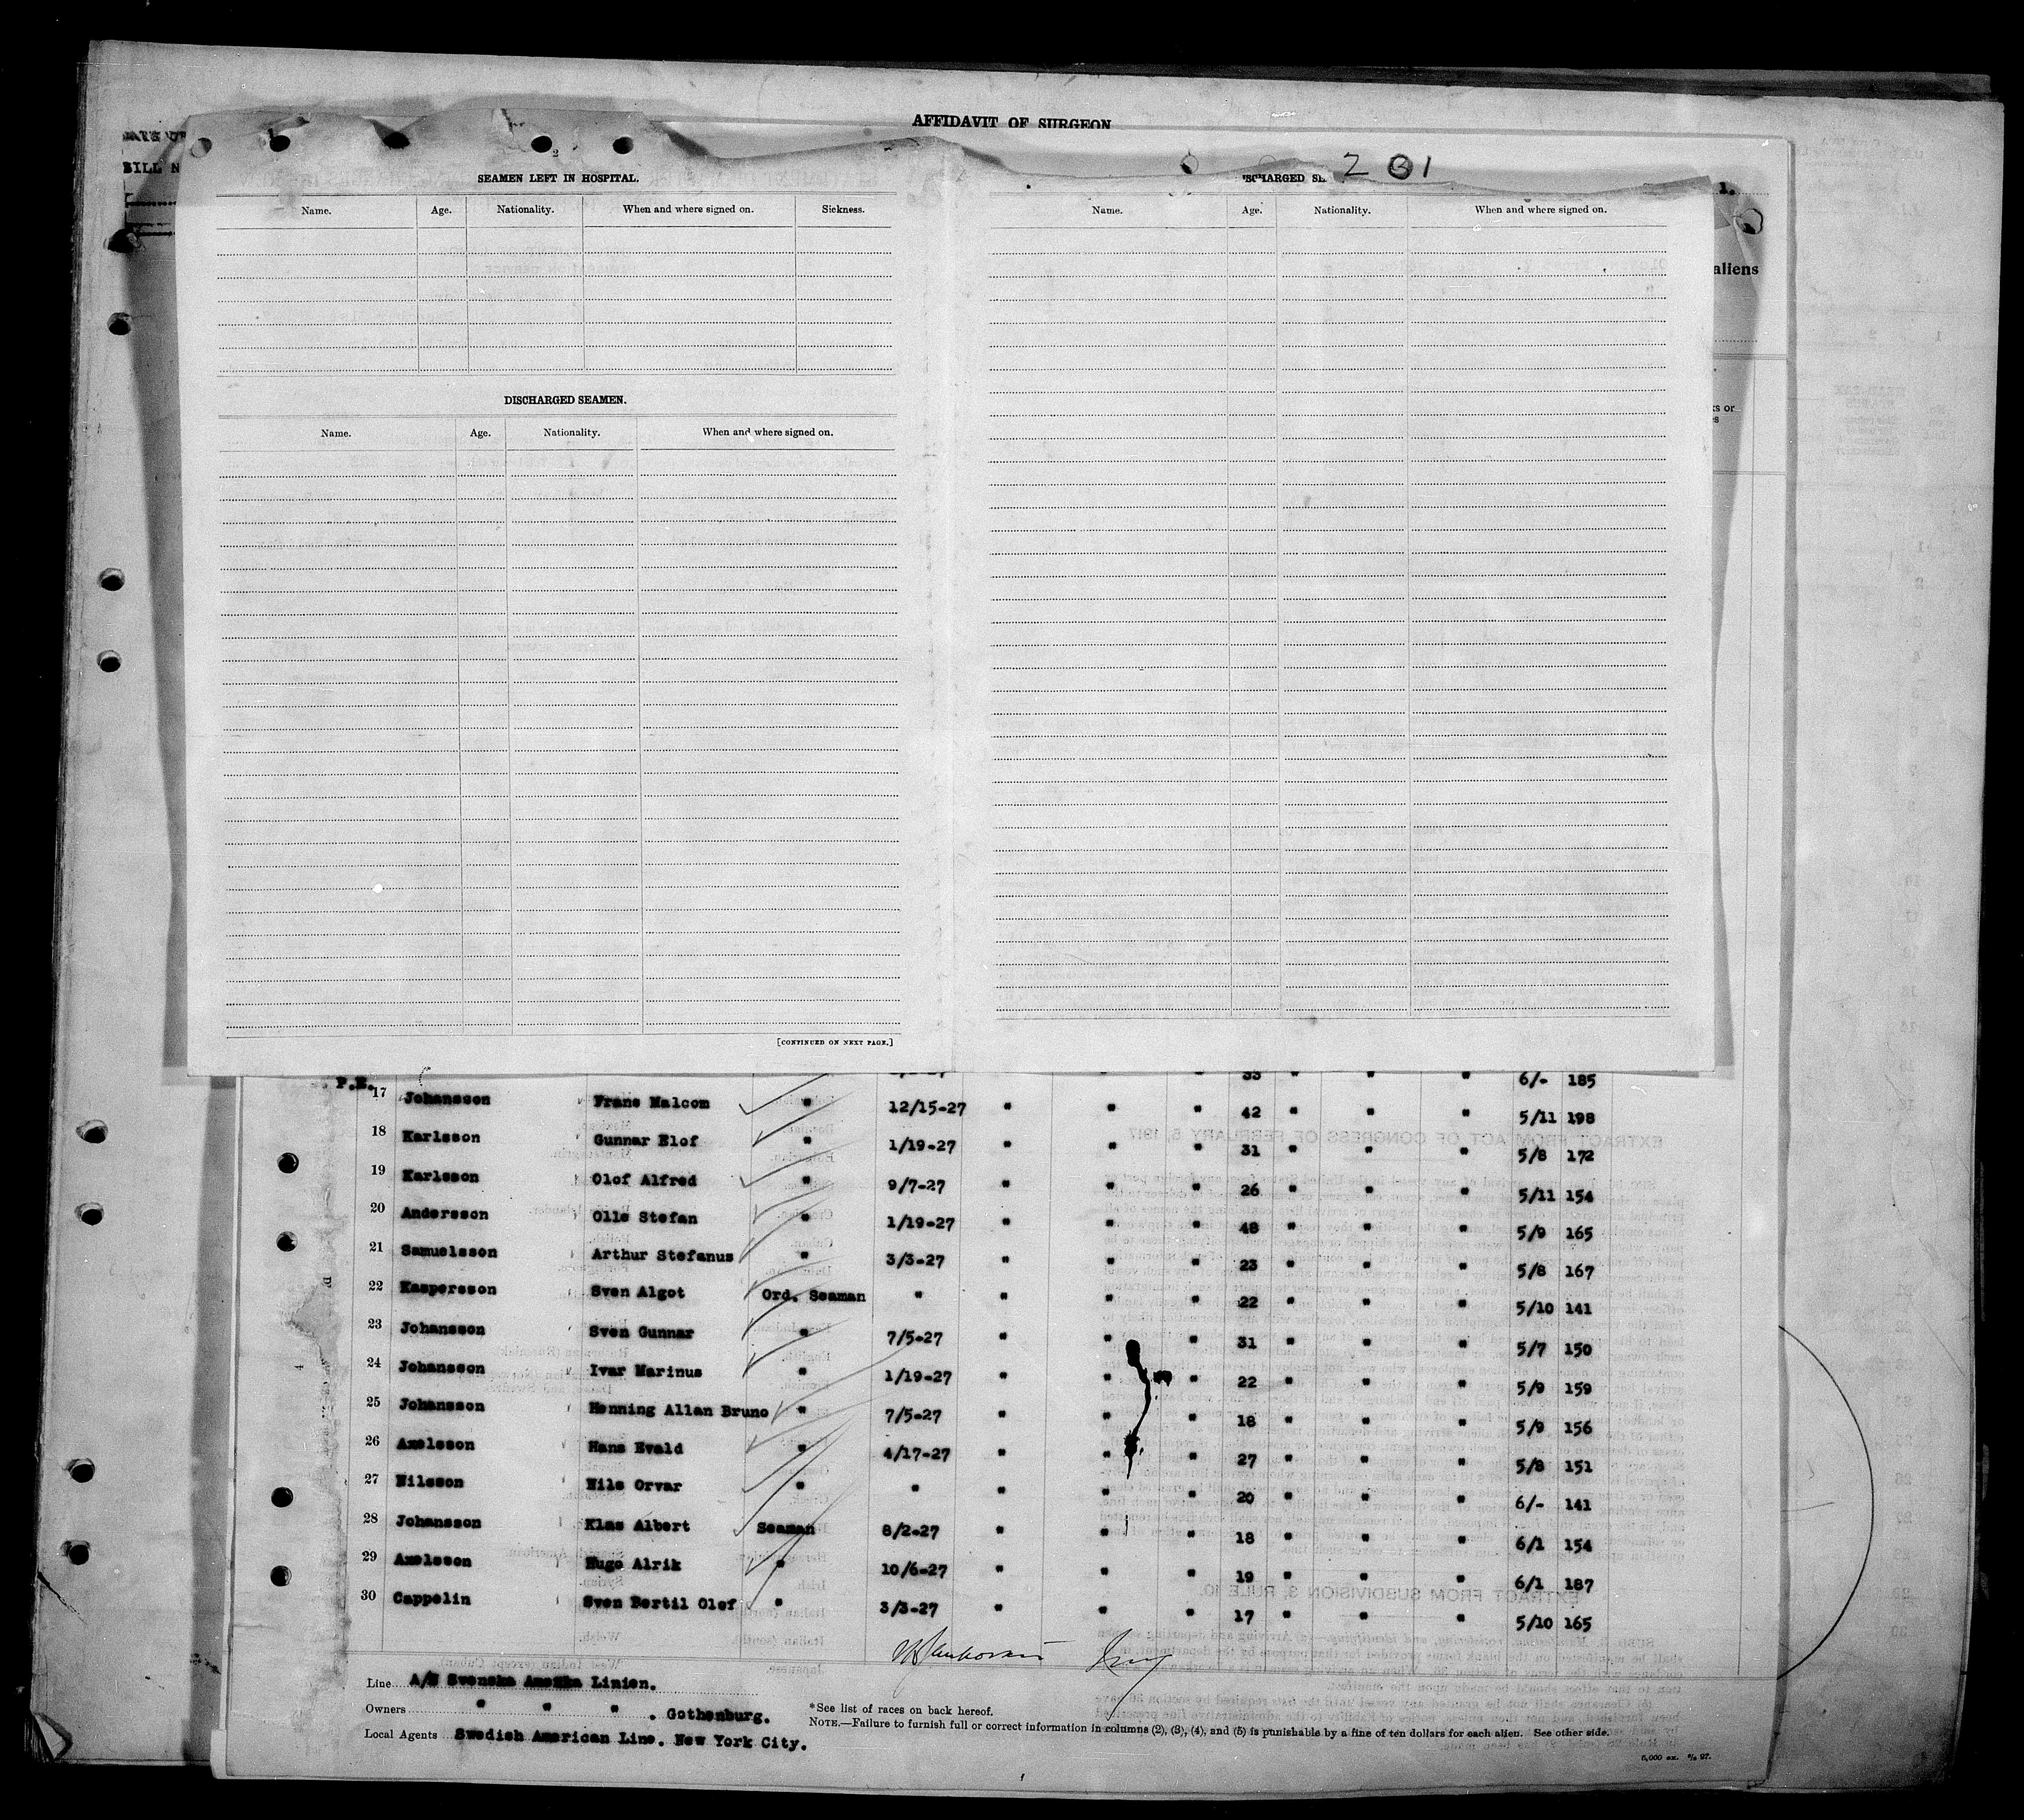 AFFIDAVIT OF SURGEON
BILL N
2
SEAMEN LEFT IN HOSPITAL.
Name. Age. Nationality. When and where signed on. Sickness.
DISCHARGED SEAMEN.
Name. Age. Nationality. When and where signed on.
[CONTINUED ON NEXT PAGE.]
201
SCHARGED SE
Name. Age. Nationality. When and where signed on.
1.
aliens
ks or
s
P.E. 33 " " " 6/- 185
17 Johansson Frans Malcom " 12/15-27 " " " 42 " " " 5/11 198
18 Karlsson Gunnar Elof " 1/19-27 " " " 31 " " " 5/8 172
19 Karlsson Olof Alfred " 9/7-27 " " " 26 " " " 5/11 154
20 Andersson Olle Stefan " 1/19-27 " " " 48 " " " 5/9 165
21 Samuelsson Arthur Stefanus " 3/3-27 " " " 23 " " " 5/8 167
22 Kaspersson Sven Algot Ord. Seaman " " " " 22 " " " 5/10 141
23 Johansson Sven Gunnar " 7/5-27 " " " 31 " " " 5/7 150
24 Johansson Ivar Marinus " 1/19-27 " " " 22 " " " 5/9 159
25 Johansson Henning Allan Bruno " 7/5-27 " " " 18 " " " 5/9 156
26 Axelsson Hans Evald " 4/17-27 " " " 27 " " " 5/8 151
27 Nilsson Nils Orvar " " " " " 20 " " " 6/- 141
28 Johansson Klas Albert Seaman 8/2-27 " " " 18 " " " 6/1 154
29 Axelsson Hugo Alrik " 10/6-27 " " " 19 " " " 6/1 187
30 Cappelin Sven Bertil Olof " 3/3-27 " " " 17 " " " 5/10 165
Line A/B Svenska Amerika Linien.
Owners " " " . Gothenburg.
Local Agents Swedish American Line. New York City.
*See list of races on back hereof.
NOTE.—Failure to furnish full or correct information in columns (2), (3), (4), and (5) is punishable by a fine of ten dollars for each alien. See other side.